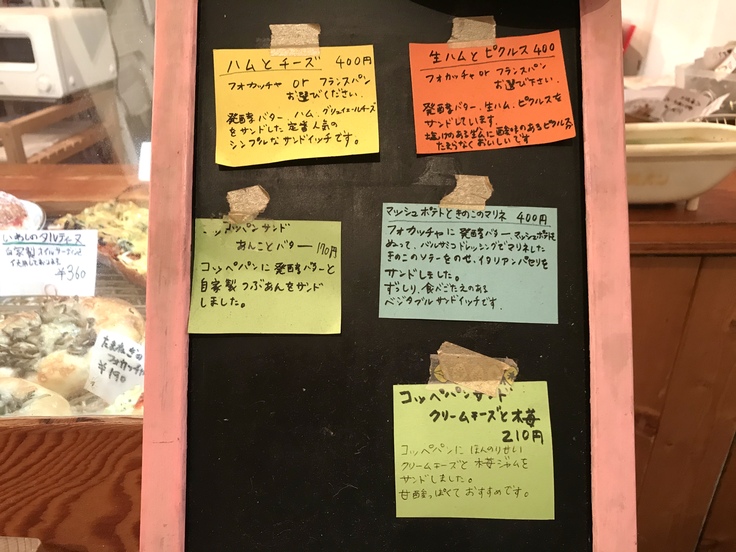 ハムとチーズ 400円
フォカッチャ or フランスパン
お選びください。
発酵バター、ハム、グリュイエールチーズ
をサンドした定番人気の
シンプルなサンドイッチです。
生ハムとピクルス 400
フォカッチャ or フランスパン
お選び下さい。
発酵バター、生ハム、ピクルスを
サンドしています。
塩けのある生ハムに酸味のあるピクルスが
たまらなくおいしいです
コッペパンサンド
あんことバター 170円
コッペパンに発酵バターと
自家製つぶあんをサンド
しました。
マッシュポテトときのこのマリネ 400円
フォカッチャに発酵バター、マッシュポテトを
ぬって、バルサミコドレッシングでマリネした
きのこソテーをのせ、イタリアンパセリを
サンドしました。
ずっしり、食べごたえのある
ベジタブルサンドイッチです。
コッペパンサンド
クリームチーズと木苺
210円
コッペパンに ほんのりせい
クリームチーズと 木苺ジャムを
サンドしました。
甘酸っぱくておすすめです。
いわしのタルティーヌ
自家製オイルサーディンを
¥360
たまねぎの
フォカッチャ
¥190